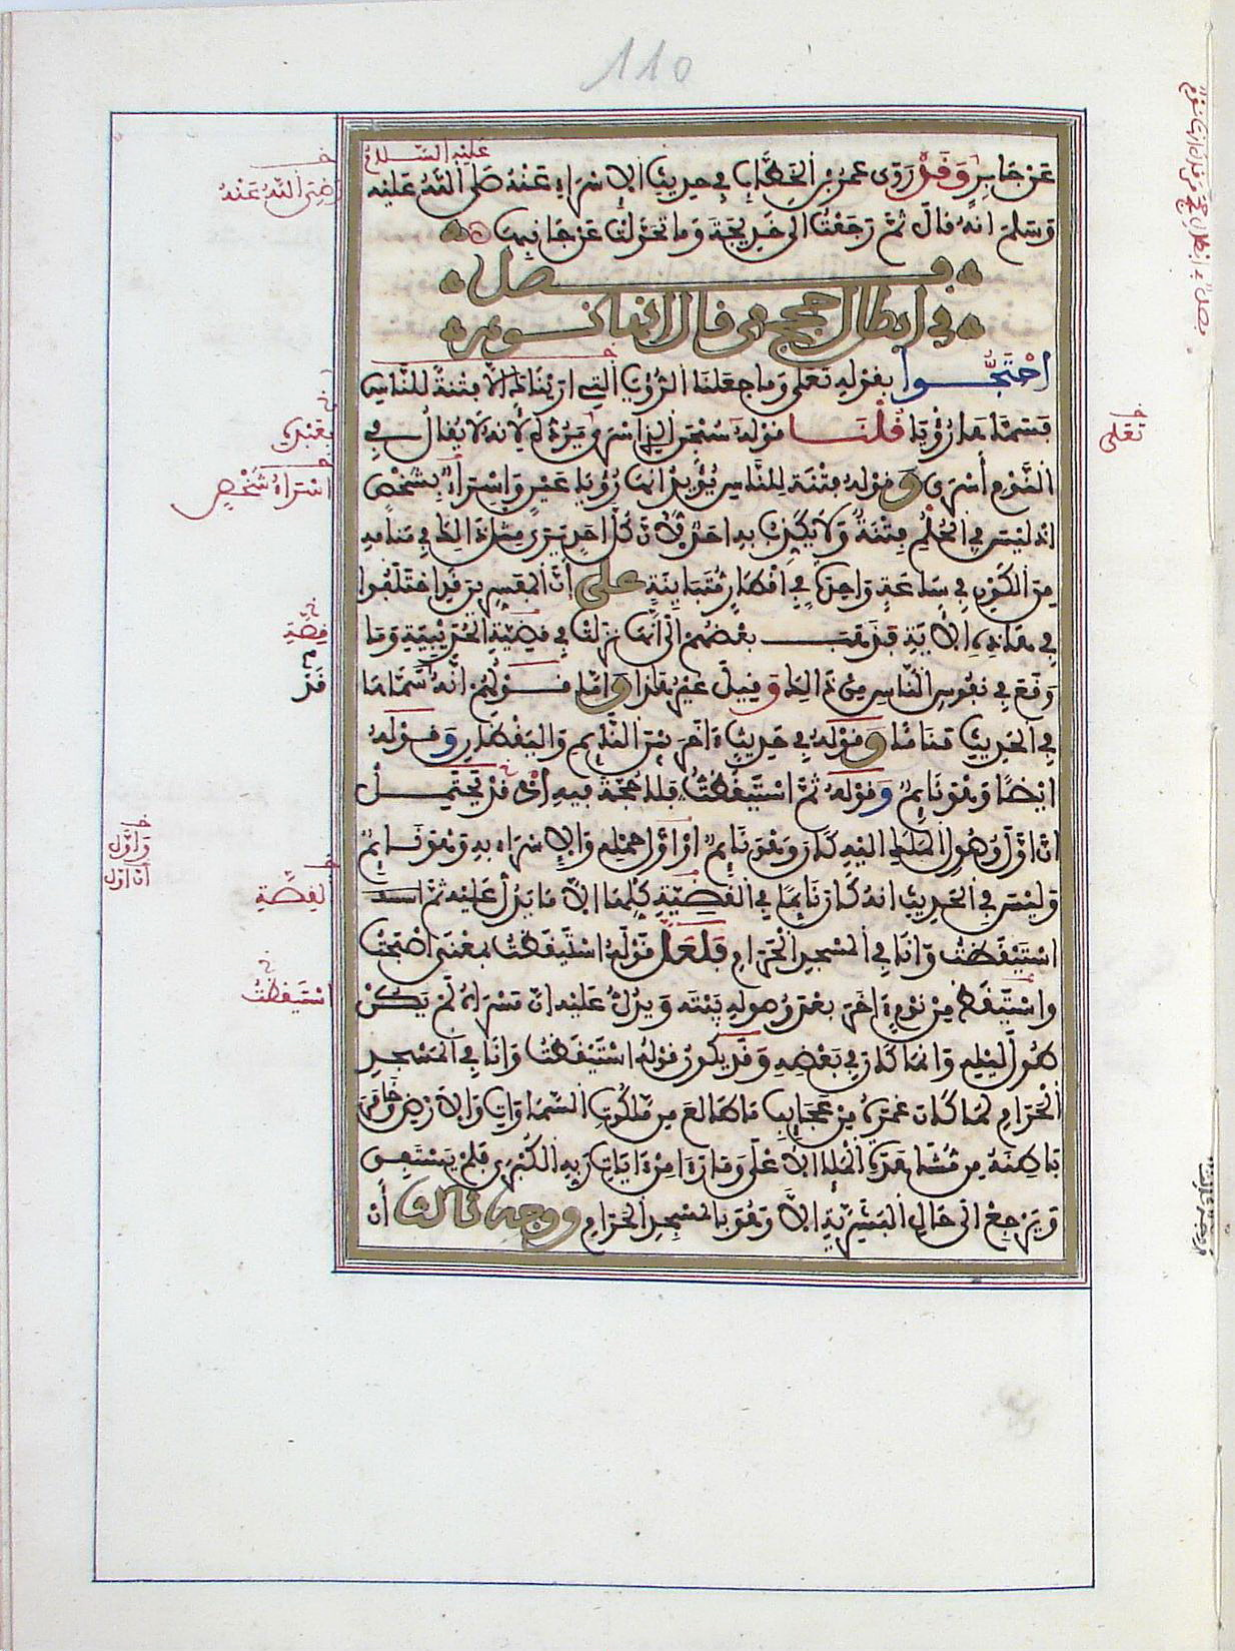 110
عليه السلام
عن جابر وقد روى عمر بن الخطاب في حديث الاسراء عنه صلى الله عليه
رضي الله عنه
وسلم انه قال ثم رجعت الى خديجة وما تحولت عن جانبها
فصل
في ابطال حجج من قال انها نوم
احتجوا بقوله تعلى وما جعلنا الرؤيا التي اريناك الا فتنة للناس
فسماها رؤيا قلنا قوله سبحن الذي اسرى يرده لانه لا يقال في
تعلى
بعبده
النوم أسرى وقوله فتنة للناس يؤيد انها رؤيا عين واسراء بشخص
اسراء شخص
اذ ليس في الحلم فتنة ولا يكذب به احد لان كل احد يرى مثل ذالك في منامه
من الكون في ساعة واحدة في اقطار متباينة على أن المفسرين قد اختلفوا
في هذه الاية فذهب بعضهم الى انها نزلت في قضية الحديبية وما
قصة
وقع في نفوس الناس من ذالك وقيل غير هذا واما قولهم انه سماها
قد
في الحديث مناما وقوله في حديث ءاخر بين النائم واليقظان وقوله
ايضا وهو نائم وقوله ثم استيقظت فلا حجة فيه اذ قد يحتمل
ان اول وصول الملك اليه كان وهو نائم او اول حمله والاسراء به وهو نائم
واول
ان اول
وليس في الحديث انه كان نائما في القضية كلها الا ما يدل عليه ثم
القصة
استيقظت وانا في المسجد الحرام فلعل قوله استيقظت بمعنى اصبحت
واستيقظ من نوم ءاخر بعد وصوله بيته ويدل عليه ان مسراه لم يكن
استيقظت
طول ليله وانما كان في بعضه وقد يكون قوله استيقظت وانا في المسجد
الحرام لما كان غمره من عجايب ما طالع من ملكوت السماوات والارض وخامر
باطنه من مشاهدة الملا الاعلى وما رءا من ءايات ربه الكبرى فلم يستفق
ويرجع الى حال البشرية الا وهو بالمسجد الحرام ووجه ثالث أن